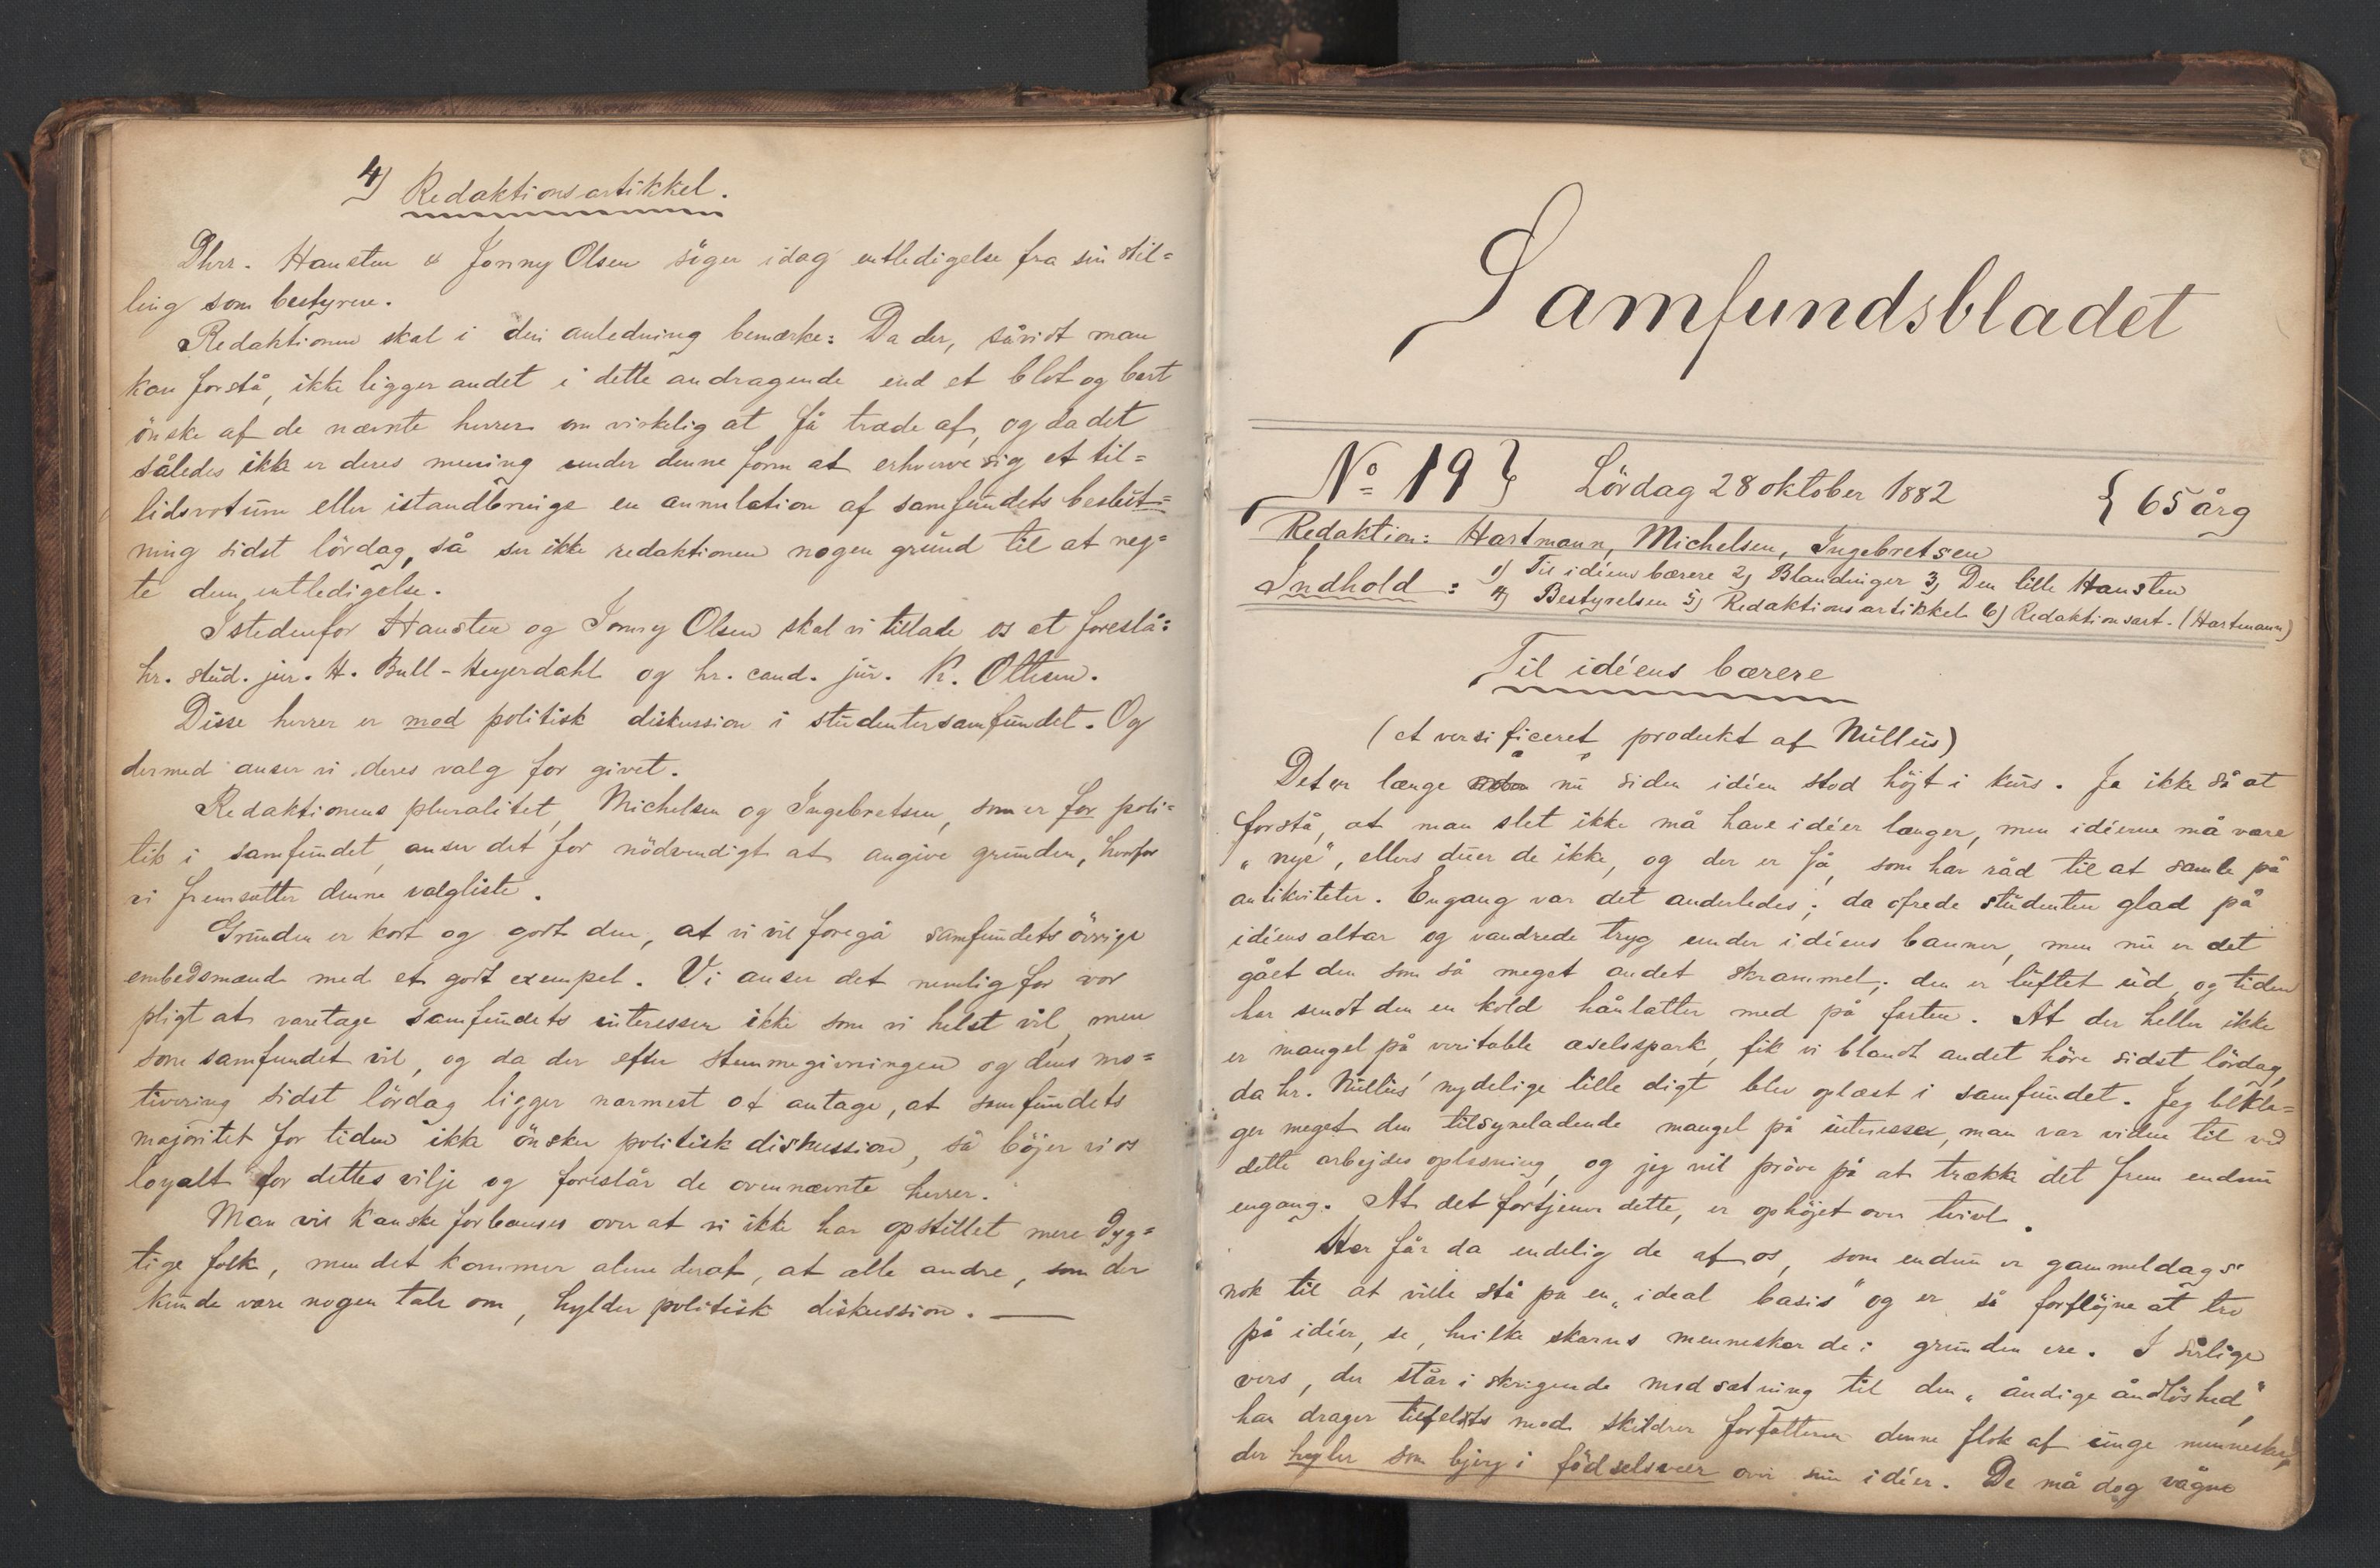 4) Redaktionsartikkel.
Dhrr. Hansteen & Jonny Olsen söger idag entledigelse fra sin stil=
ling som bestyrere.
Redaktionen skal i den anledning bemærke: Da der, såvidt man
kan forstå, ikke ligger andet i dette andragende end et blot og bart
önske af de nævnte herrer om virkelig at få træde af, og da det
således ikke er deres mening under denne form at erhverve sig et til=
lidsvotum eller istandbringe en annulation af samfundets beslut=
ning sidst lördag, så ser ikke redaktionen nogen grund til at neg=
te dem entledigelse.
Istedenfor Hansteen og Jonny Olsen skal vi tillade os at foreslå:
hr. stud. jur. H. Bull-Heyerdahl og hr. cand. jur. K. Ottesen.
Disse herrer er mod politisk diskussion i studentersamfundet. Og
dermed anser vi deres valg for givet.
Redaktionens pluralitet, Michelsen og Ingebretsen, som er for poli=
tik i samfundet, anser det for nödvendigt at angive grunden, hvorfor
vi fremsætter denne valgliste.
Grunden er kort og godt den, at vi vil foregå samfundets övrige
embedsmænd med et godt exempel. Vi anser det nemlig for vor
pligt at varetage samfundets interesser ikke som vi helst vil, men
som samfundet vil, og da der efter stemmegivningen og dens mo=
tivering sidst lördag ligger nærmest at antage, at samfundets
majoritet for tiden ikke önsker politisk diskussion, så böjer vi os
loyalt for dettes vilje og foreslår de ovennævnte herrer.
Man vil kanske forbauses over at vi ikke har opstillet mere dyg=
tige folk, men det kommer alene deraf, at alle andre, som der
kunde være nogen tale om, hylder politisk diskussion. —
Samfundsbladet
No 19 } Lördag 28 oktober 1882 { 65 årg
Redaktion: Hartmann, Michelsen, Ingebretsen
Indhold: 1) Til idéens bærere 2) Blandinger 3) Den lille Hansteen
4) Bestyrelsen 5) Redaktionsartikkel 6) Redaktionsart. (Hartmann)
Til idéens bærere
(et versificeret produkt af Nullus)
Det er længe nu siden idéen stod höjt i kurs. Ja ikke så at
forstå, at man slet ikke må have idéer længer, men idéerne må være
"nye", ellers duer de ikke, og der er få, som har råd til at samle på
antikviteter. Engang var det anderledes; da ofrede studenten glad på
idéens altar og vandrede tryg under idéens banner, men nu er det
gået den som så meget andet skrammel; den er luftet ud, og tiden
har sendt den en kold hånlatter med på farten. At der heller ikke
er mangel på veritable æselsspark, fik vi blandt andet höre sidst lördag,
da hr. Nullus' nydelige lille digt blev oplæst i samfundet. Jeg bekla=
ger meget den tilsyneladende mangel på interesse, man var vidne til ved
dette arbejdes oplæsning, og jeg vil pröve på at trække det frem endnu
engang. At det fortjener dette, er ophöjet over tvivl.
Her får da endelig de af os, som endnu er gammeldags
nok til at ville stå på en "ideal basis" og er så forflöjne at tro
på idéer, se, hvilke skarns mennesker de i grunden ere. I sirlige
vers, der står i skrigende modsætning til den "åndige åndlöshed",
han drager tilfelts mod skildrer forfatteren denne flok af unge mennesker,
der hyler som bjerg i födselsveer over sine idéer. De må dog vågne